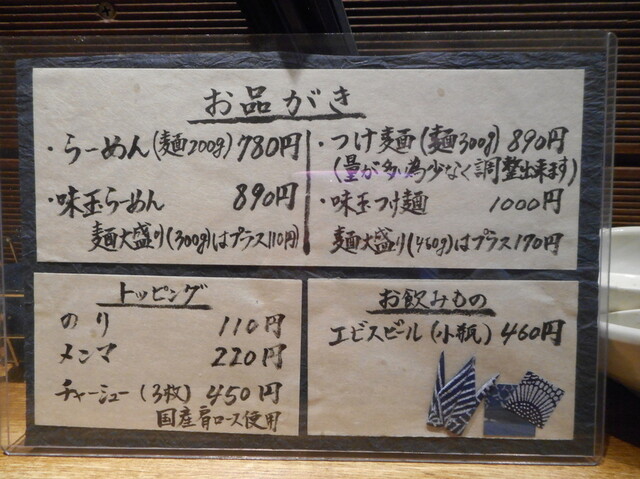 お品がき
・らーめん(麺200g) 780円
・味玉らーめん 890円
麺大盛り(300g)はプラス110円)
・つけ麺(麺300g) 890円
(量が多い為少なく調整出来ます)
・味玉つけ麺 1000円
麺大盛り(450g)はプラス170円
トッピング
のり 110円
メンマ 220円
チャーシュー(3枚) 450円
国産肩ロース使用
お飲みもの
エビスビール(小瓶) 460円